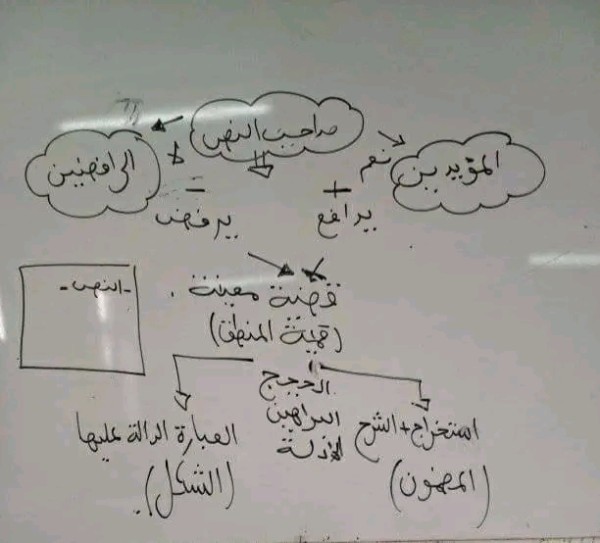 صاحب النص
المؤيدين
نعم
لا
الرافضين
+
-
يدافع
يرفض
قضية معينة.
(قيمة المنطق)
- النص -
الحجج
البراهين
الأدلة
استخراج + الشرح
(المضمون)
العبارة الدالة عليها
(الشكل).